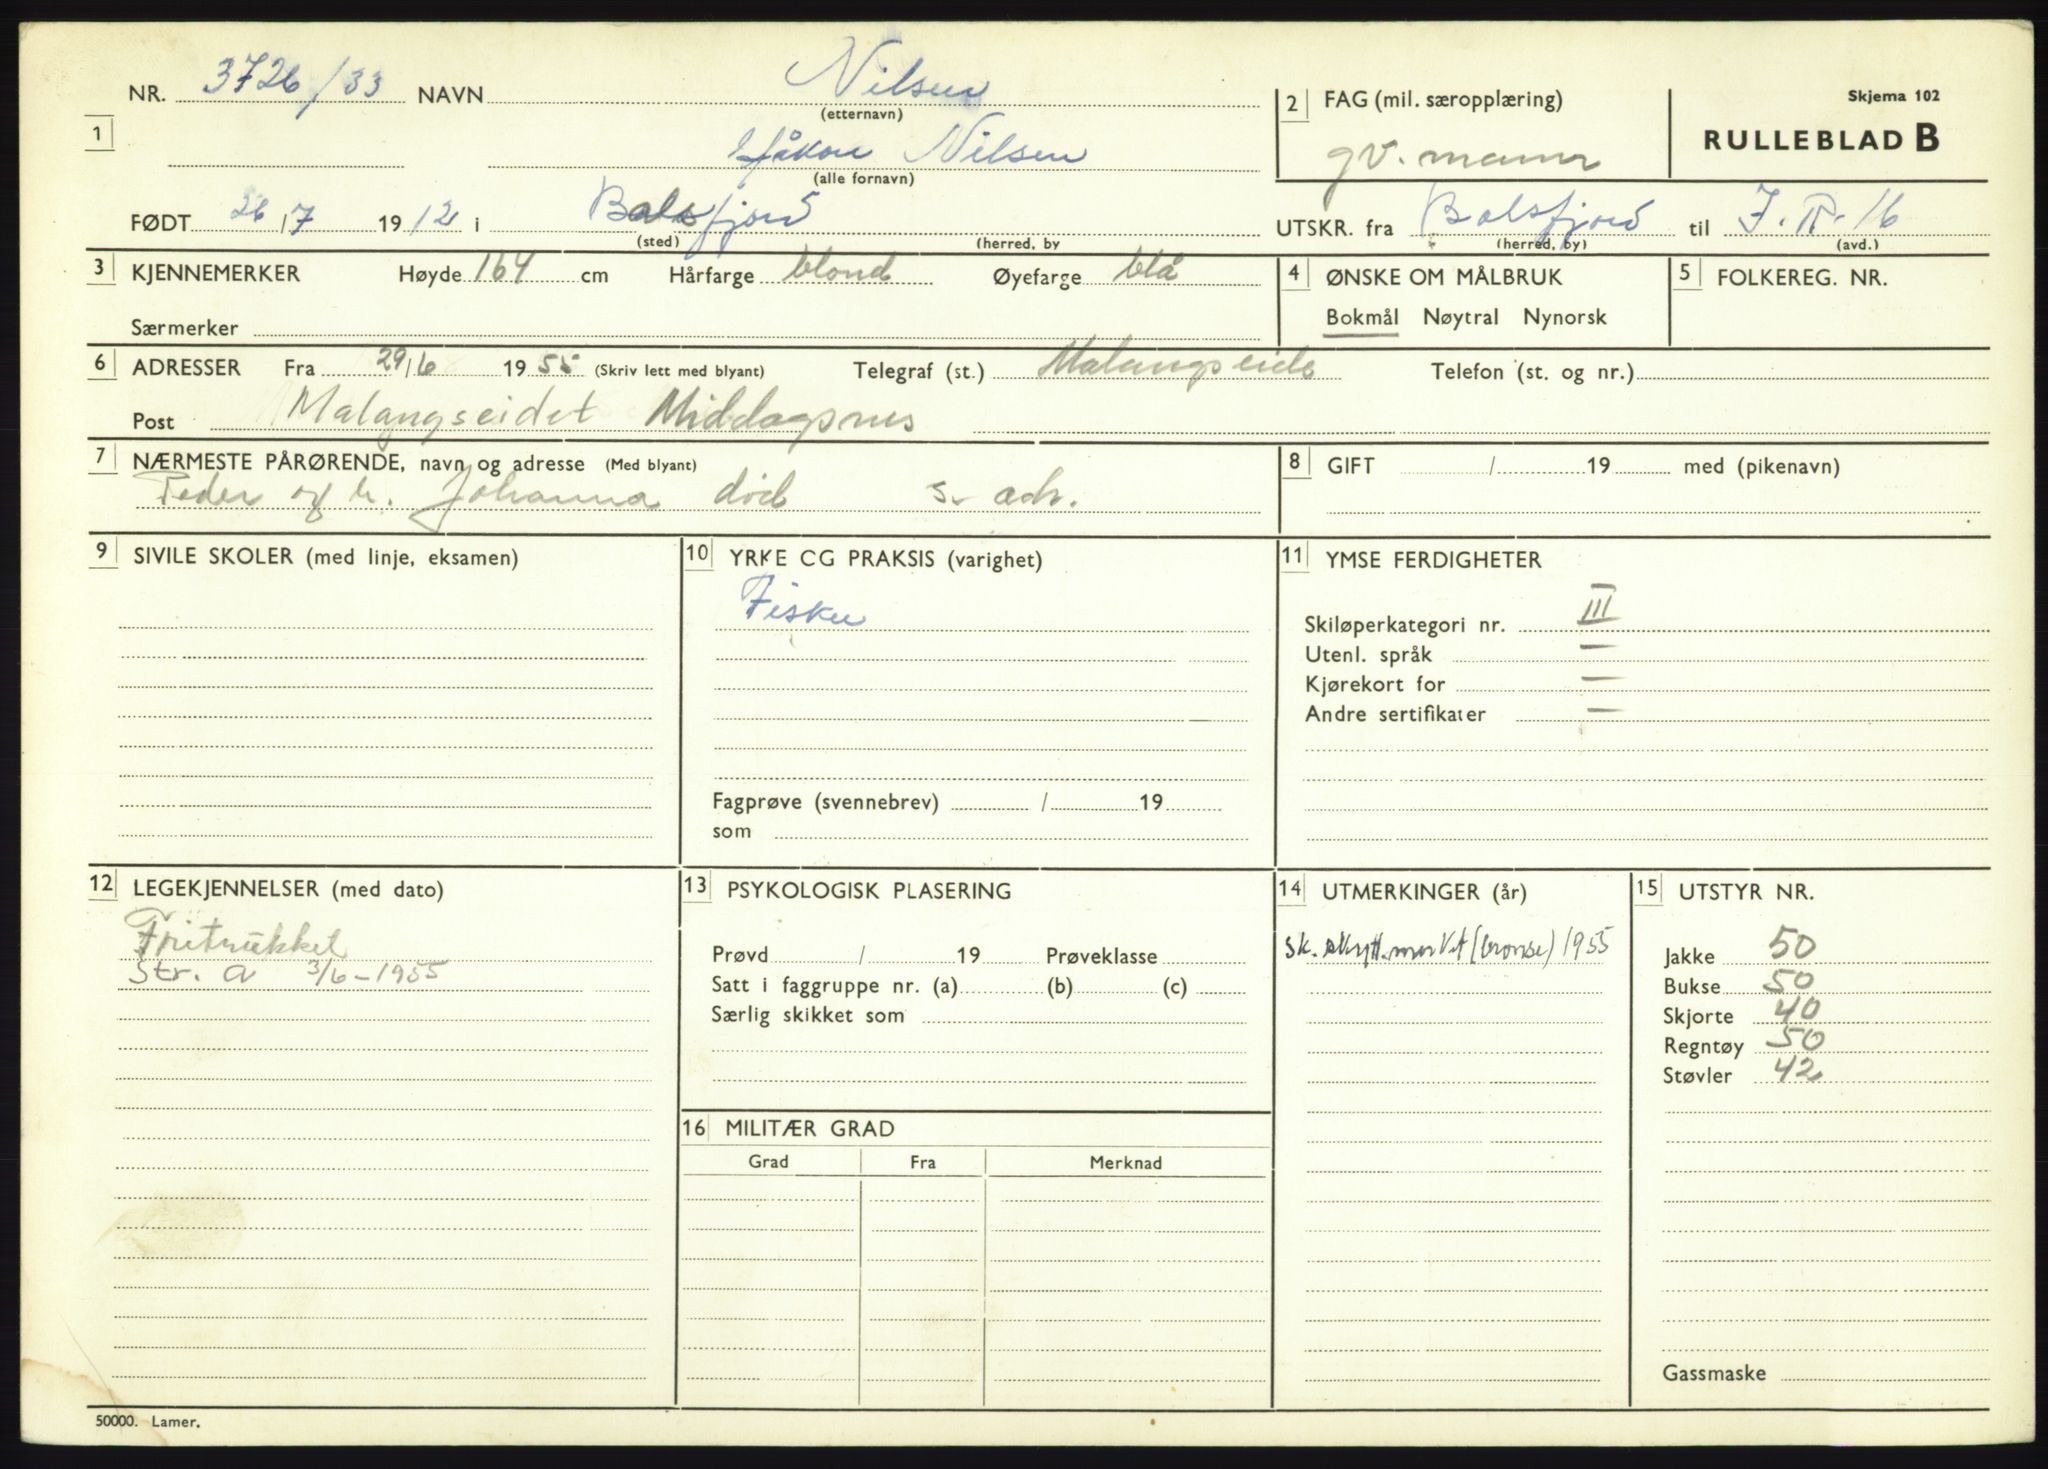 NR. 3726/33 NAVN Nilsen
(etternavn)
2 FAG (mil. særopplæring)
Skjema 102
RULLEBLAD B
1
Håkon Nilsen
(alle fornavn)
gv. mann
FØDT 26/7 1912 i Balsfjord
(sted) (herred, by
UTSKR. fra Balsfjord til I.R. 16
(herred, by) (avd.)
3 KJENNEMERKER Høyde 164 cm Hårfarge blond Øyefarge blå
Særmerker
4 ØNSKE OM MÅLBRUK
Bokmål Nøytral Nynorsk
5 FOLKEREG. NR.
6 ADRESSER Fra 29/6 1955 (Skriv lett med blyant) Telegraf (st.) Malangseide Telefon (st. og nr.)
Post Malangseidet Middagsnes
7 NÆRMESTE PÅRØRENDE, navn og adresse (Med blyant)
Peder og h. Johanna død s. adr.
8 GIFT / 19 med (pikenavn)
9 SIVILE SKOLER (med linje, eksamen)
10 YRKE CG PRAKSIS (varighet)
Fisker
Fagprøve (svennebrev) / 19
som
11 YMSE FERDIGHETER
Skiløperkategori nr. III
Utenl. språk —
Kjørekort for —
Andre sertifikater —
12 LEGEKJENNELSER (med dato)
Fritrukket
Str. a 3/6-1955
13 PSYKOLOGISK PLASERING
Prøvd / 19 Prøveklasse
Satt i faggruppe nr. (a) (b) (c)
Særlig skikket som
14 UTMERKINGER (år)
sk. skytt. merket (bronse) 1955
15 UTSTYR NR.
Jakke 50
Bukse 50
Skjorte 40
Regntøy 50
Støvler 42
Gassmaske
16 MILITÆR GRAD
Grad Fra Merknad
50000. Lamer.